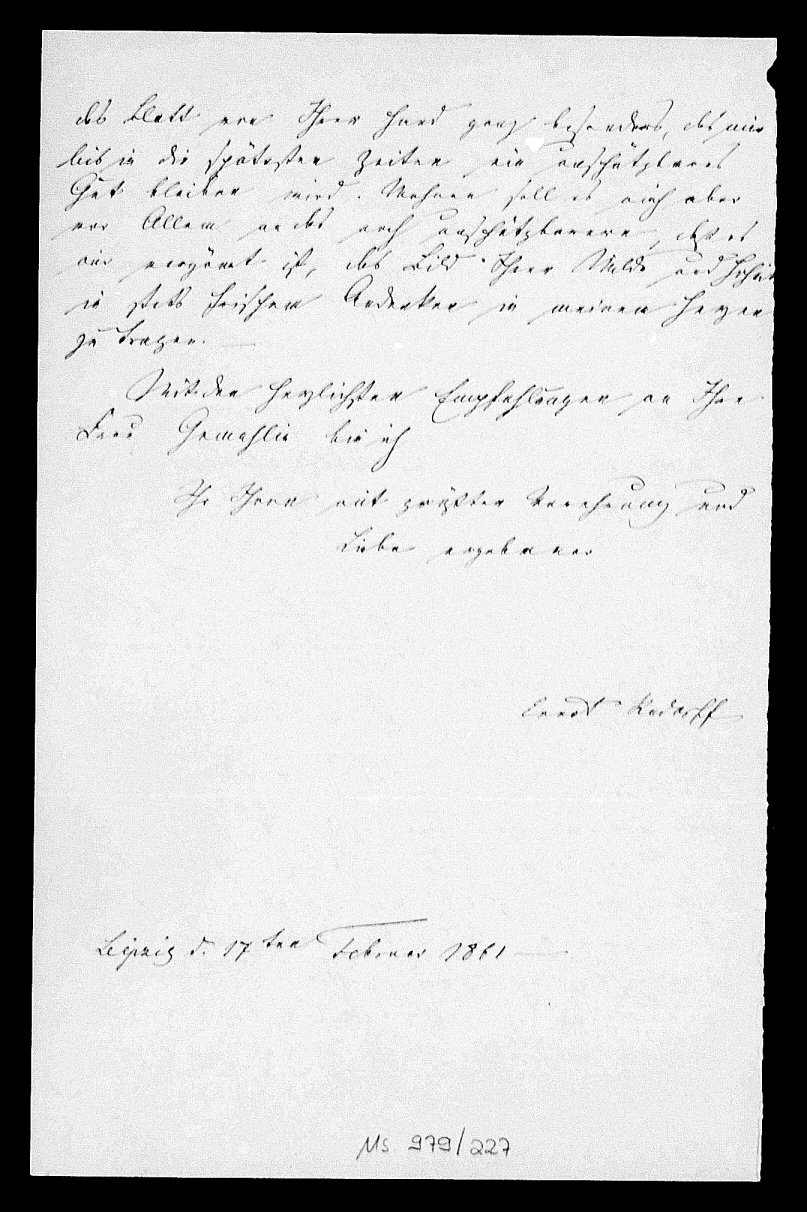 das Blatt von Ihrer Hand ganz besonders, das mir
bis in die spätesten Zeiten ein unschätzbares
Gut bleiben wird. Mahnen soll es mich aber
vor Allem an das noch unschätzbarere, daß es
mir vergönnt ist, das Bild Ihrer Milde und
in stets frischem Andenken in meinem Herzen
zu tragen. —
Mit den herzlichsten Empfehlungen an Ihre
Frau Gemahlin bin ich
Ihr Ihnen mit größter Verehrung und
Liebe ergebener
Ernst Rudorff
Leipzig d. 17ten Februar 1861 —
Ms 979/227